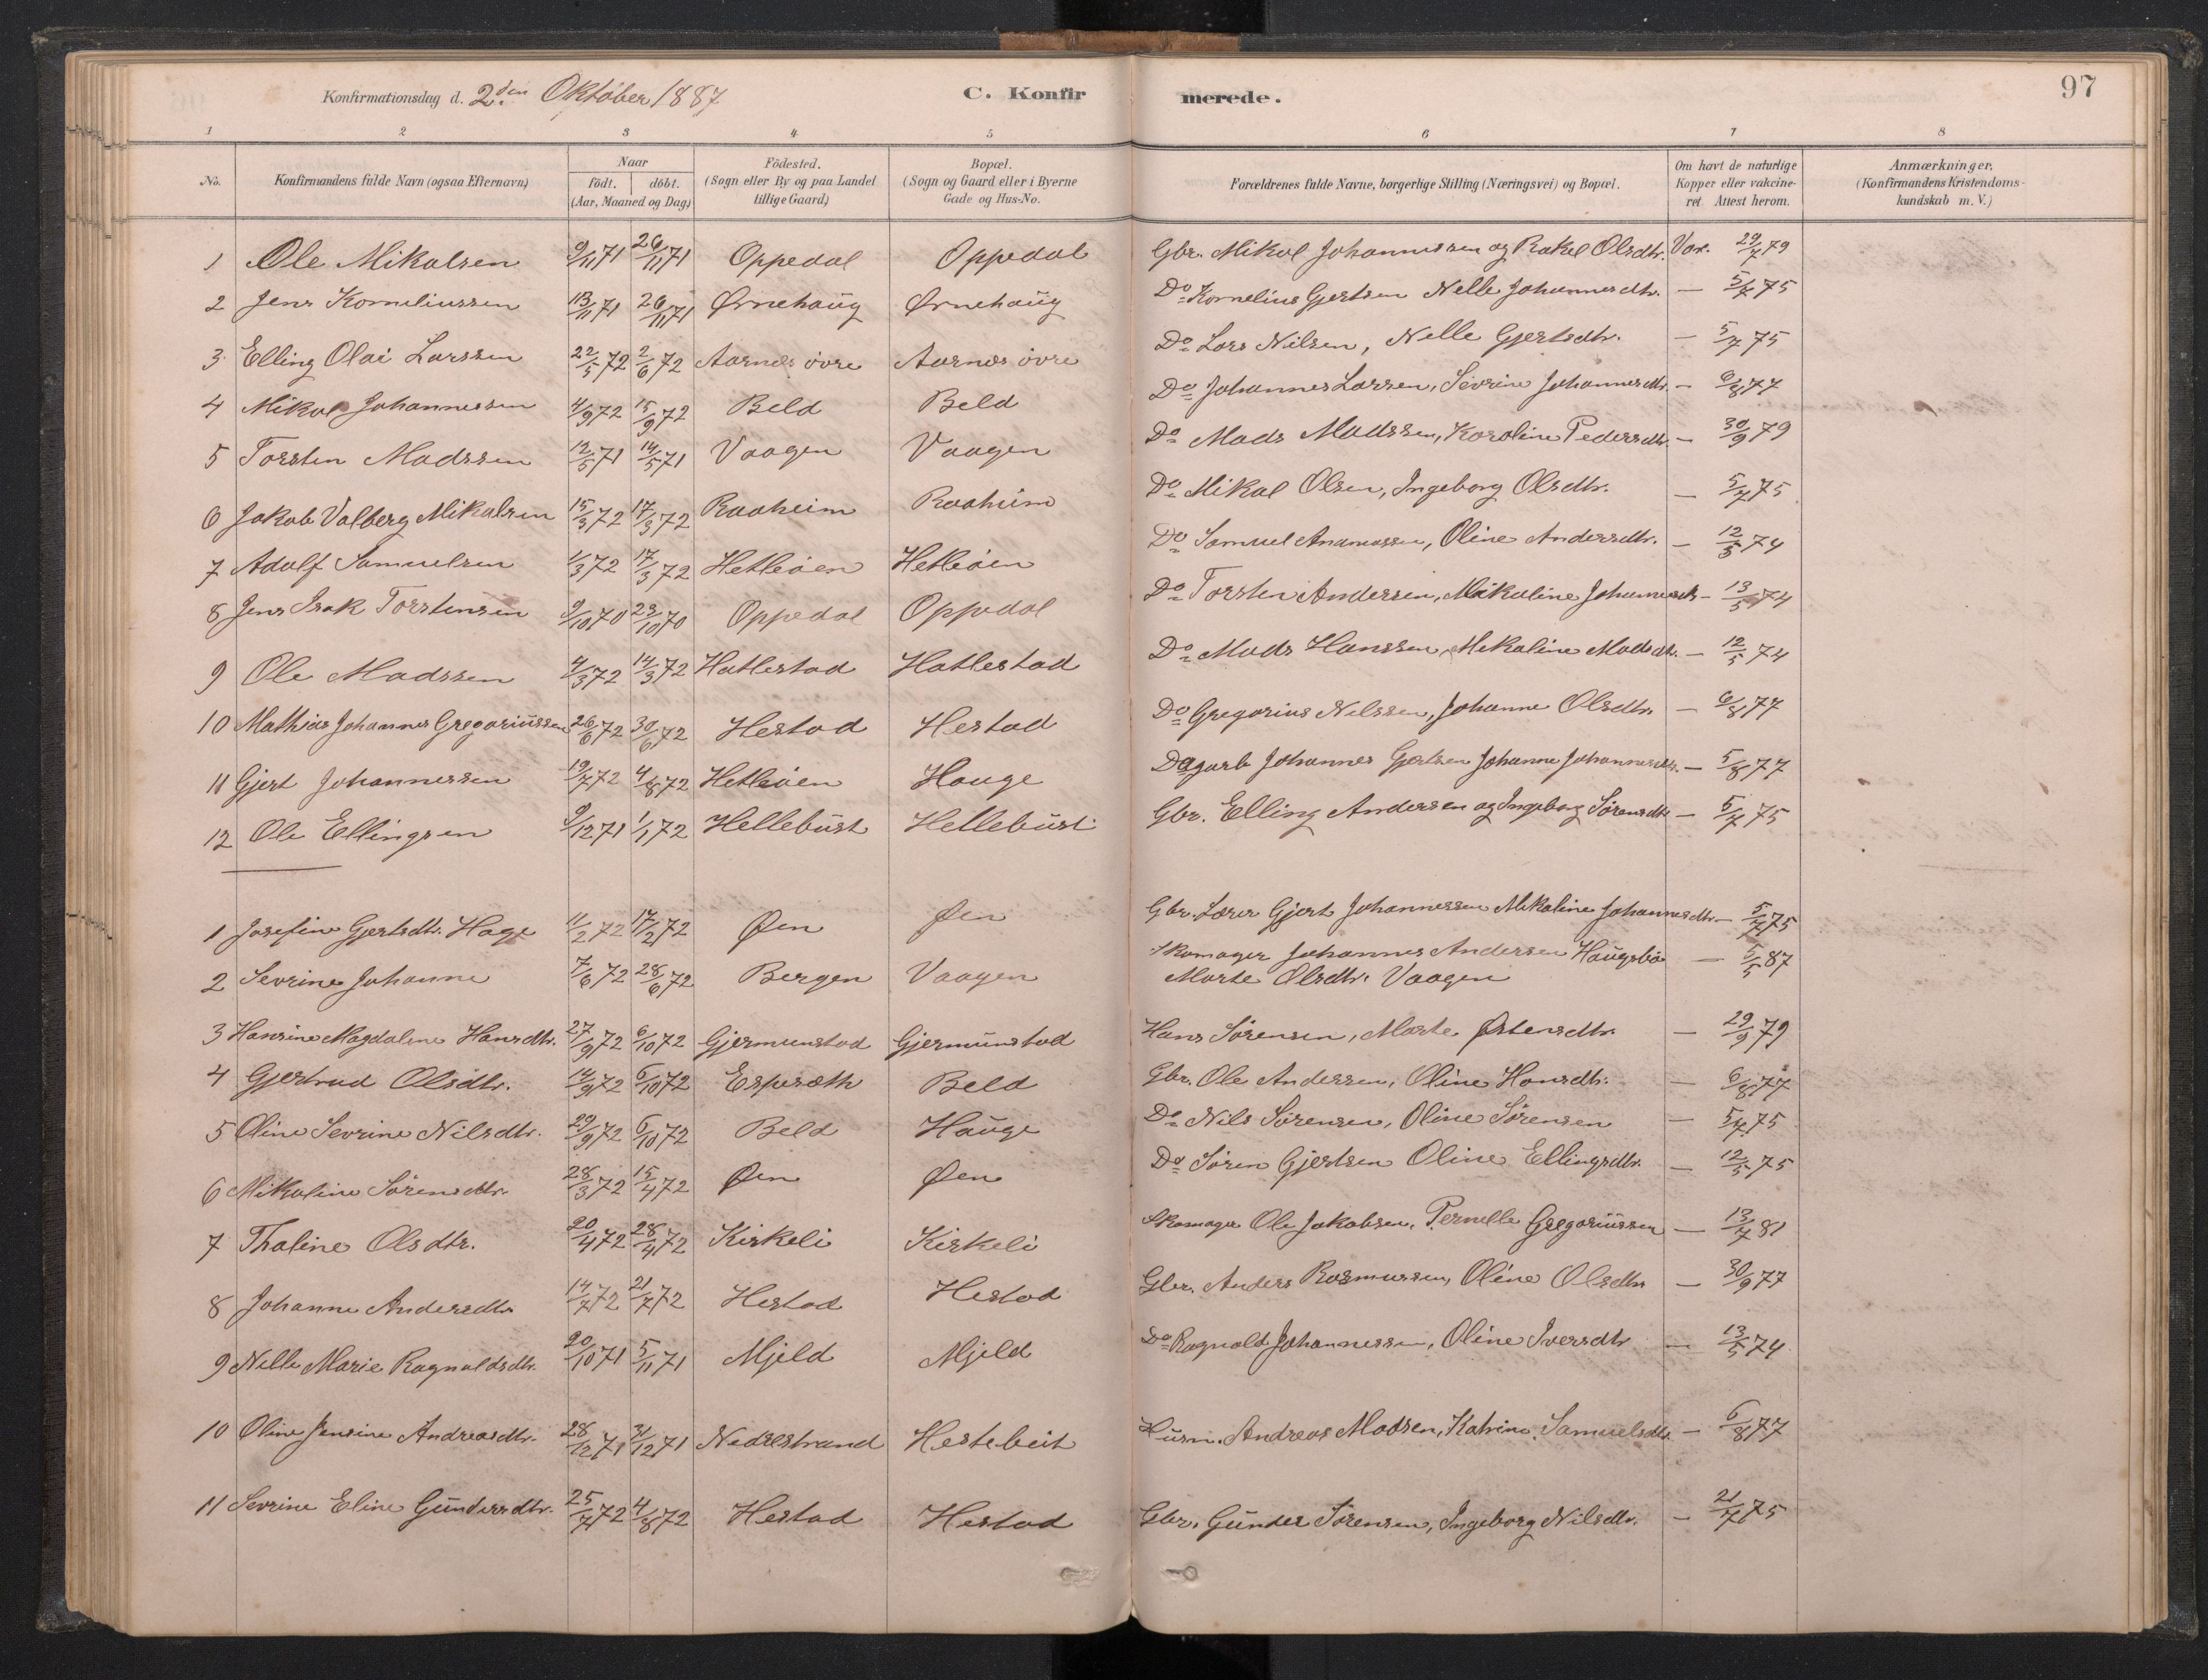 97
Konfirmationsdag d. 2den Oktober 1887 C. Konfirmerede.
1 2 3 4 5 6 7 8
No. Konfirmandens fulde Navn (ogsaa Efternavn) Naar födt. döbt. (Aar, Maaned og Dag) Födested. (Sogn eller By og paa Landet tillige Gaard) Bopæl. (Sogn og Gaard eller i Byerne Gade og Hus-No. Forældrenes fulde Navne, borgerlige Stilling (Næringsvei) og Bopæl. Om havt de naturlige Kopper eller vakcineret. Attest herom. Anmærkninger, (Konfirmandens Kristendomskundskab m. V.)
1 Ole Mikalsen 9/11 71 26/11 71 Oppedal Oppedal Gbr. Mikal Johannessen og Rakel Olsdtr. Vax. 29/7 79
2 Jens Korneliussen 13/11 71 26/11 71 Ørnehaug Ørnehaug Do Kornelius Gjertsen Nelle Johannesdtr. — 5/7 75
3 Elling Olai Larssen 22/5 72 2/6 72 Aarnæs övre Aarnæs övre Do Lars Nilsen, Nelle Gjertsdtr. — 5/7 75
4 Mikal Johannessen 4/9 72 15/9 72 Beld Beld Do Johannes Larssen, Sevrine Johannesdtr. — 6/8 77
5 Torsten Madssen 12/5 71 14/5 71 Vaagen Vaagen Do Mads Madssen, Karoline Pedersdtr. — 30/9 79
6 Jakob Valberg Mikalsen 15/3 72 17/3 72 Raaheim Raaheim Do Mikal Olsen, Ingeborg Olsdtr. — 5/7 75
7 Adolf Samuelsen 1/3 72 17/3 72 Hetleöen Hetleöen Do Samuel Oline Andersdtr. — 12/5 74
8 Jens Isak Torstensen 9/10 70 23/10 70 Oppedal Oppedal Do Torsten Andersen, Mikaline Johannesdtr — 13/5 74
9 Ole Madssen 4/3 72 14/3 72 Hatlestad Hatlestad Do Mads Hanssen, Mikaline Madsdtr. — 12/5 74
10 Mathias Johannes Gregoriussen 26/6 72 30/6 72 Hestad Hestad Do Gregorius Nilssen, Johanne Olsdtr. — 6/8 77
11 Gjert Johannessen 19/7 72 4/8 72 Hetleöen Hauge Dagarb Johannes Gjertsen Johanne Johannesdtr. — 5/8 77
12 Ole Ellingsen 9/12 71 1/1 72 Hellebust Hellebust Gbr. Elling Andersen og Ingeborg Sörensdtr — 5/7 75
1 Josefine Gjertsdtr. Hage 11/2 72 17/2 72 Øen Øen Gbr. Lærer Gjert Johannessen Mikaline Johannesdtr — 5/7 75
2 Sevrine Johanne 7/6 72 28/6 72 Bergen Vaagen Skomager Johannes Andersen Haugsbö — 5/5 87
Marte Olsdtr. Vaagen
3 Hansine Magdalene Hansdtr. 27/9 72 6/10 72 Gjermunstad Gjermunstad Hans Sörensen, Marte Østensdtr. — 29/9 79
4 Gjertrud Olsdtr. 14/9 72 6/10 72 Espesæth Beld Gbr. Ole Anderssen, Oline Hansdtr. — 6/8 77
5 Oline Sevrine Nilsdtr. 29/9 72 6/10 72 Beld Hauge Do Nils Sörensen, Oline Sörensen — 5/7 75
6 Mikaline Sörensdtr. 28/3 72 15/4 72 Øen Øen Do Sören Gjertsen Oline Ellingsdtr. — 12/5 75
7 Thaline Olsdtr. 20/4 72 28/4 72 Kirkeli Kirkeli Skomager Ole Jakobsen, Pernelle Gregoriussen — 13/7 81
8 Johanne Andersdtr 14/7 72 21/7 72 Hestad Hestad Gbr. Anders Rasmussen, Oline Olsdtr — 30/9 77
9 Nelle Marie Ragnaldsdtr. 20/10 71 5/11 71 Mjeld Mjeld Do Ragnald Johannessen, Oline Iversdtr — 13/5 74
10 Oline Jensine Andreasdtr. 28/12 71 31/12 71 Nedrestrand Hestebeit Husm. Andreas Madsen, Katrine Samuelsdtr. — 6/8 77
11 Sevrine Eline Gundersdtr. 25/7 72 4/8 72 Hestad Hestad Gbr. Gunder Sörensen, Ingeborg Nilsdtr. — 21/7 75